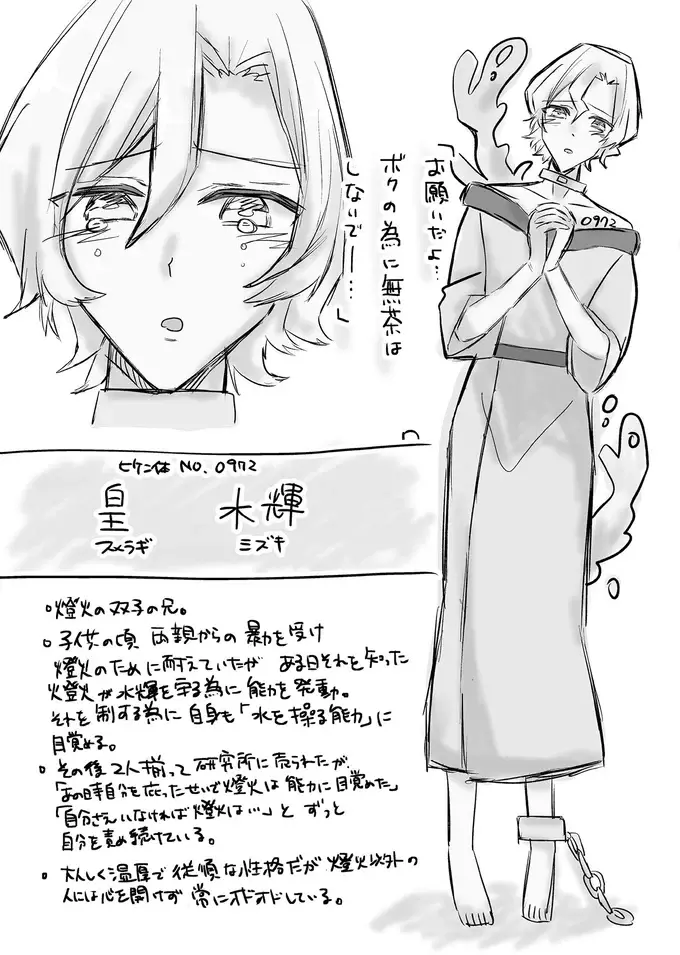 「お願いだよ…
ボクの為に無茶は
しないでー…」
0972
ヒケン体 NO. 0972
皇 水輝
スメラギ ミズキ
・燈火の双子の兄。
・子供の頃 両親からの暴力を受け
燈火のために耐えていたが ある日それを知った
燈火が水輝を守る為に能力を発動。
それを制する為に自身も「水を操る能力」に
目覚める。
・その後2人揃って研究所に売られたが、
「あの時自分を庇ったせいで燈火は能力に目覚めた」
「自分さえいなければ燈火は…」と ずっと
自分を責め続けている。
・大人しく温厚で従順な性格だが 燈火以外の
人には心を開けず 常にオドオドしている。